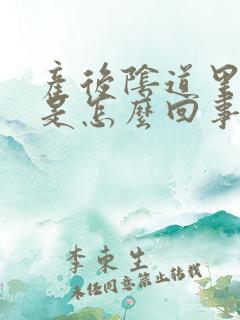 產後陰道里
是怎麼回事
李東生
未经同意禁止转载